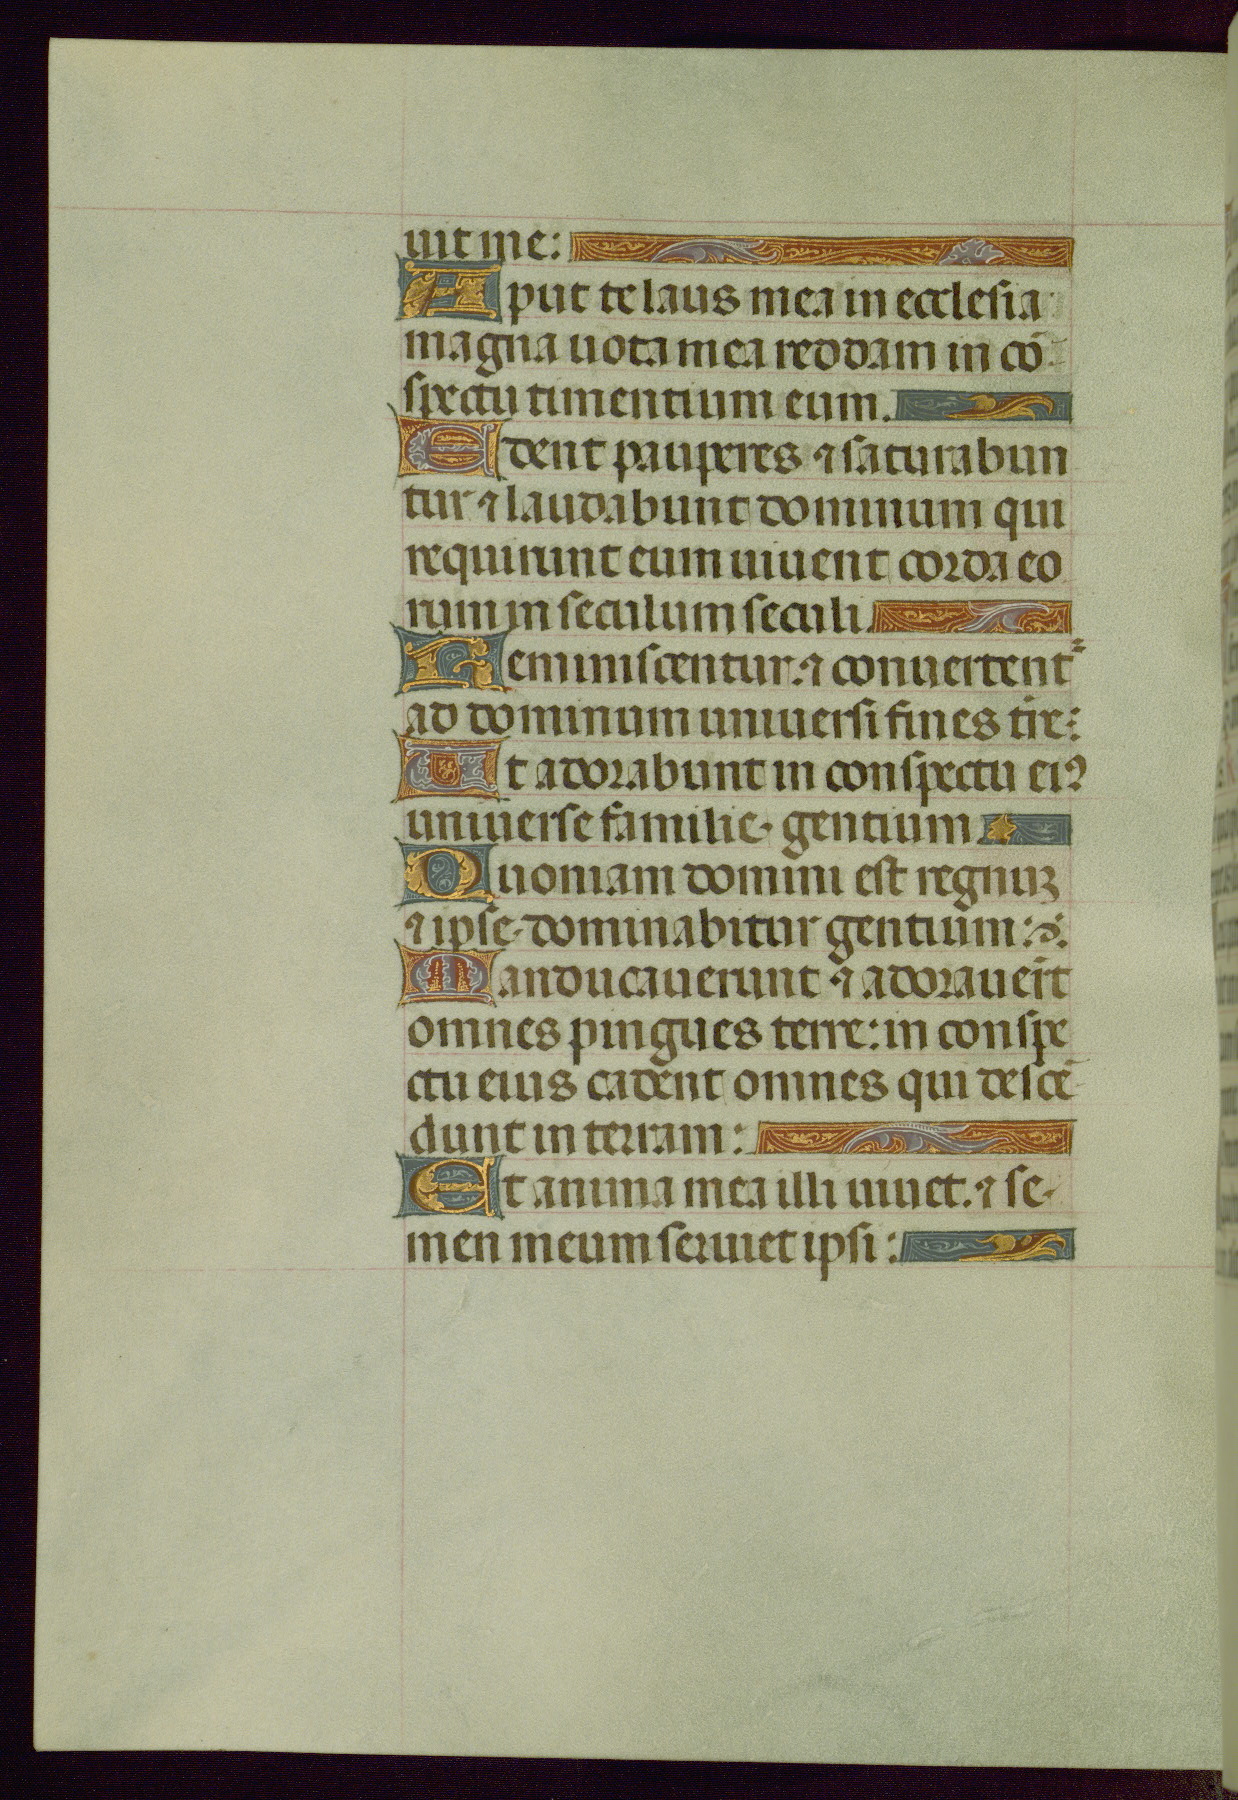 uit me:
Aput te laus mea in ecclesia
magna uota mea reddam in cō-
spectu timentium eum.
Edent pauperes ⁊ saturabun
tur ⁊ laudabunt dominum qui
requirunt eum uiuent corda eo
rum in seculum seculi
Reminiscentur. ⁊ conuertentᷣ
ad dominum uniuersi fines tr̄e:
Et adorabunt in conspectu eiꝰ
uniuerse familie gentium
Quoniam domini est regnuꝫ
⁊ ipse dominabitur gentium:
Manducauerunt ⁊ adorauer̄t
omnes pingues terre: in conspe
ctu eius cadent omnes qui descē-
dunt in terram:
Et anima mea illi uiuet. ⁊ se-
men meum seruiet ipsi: